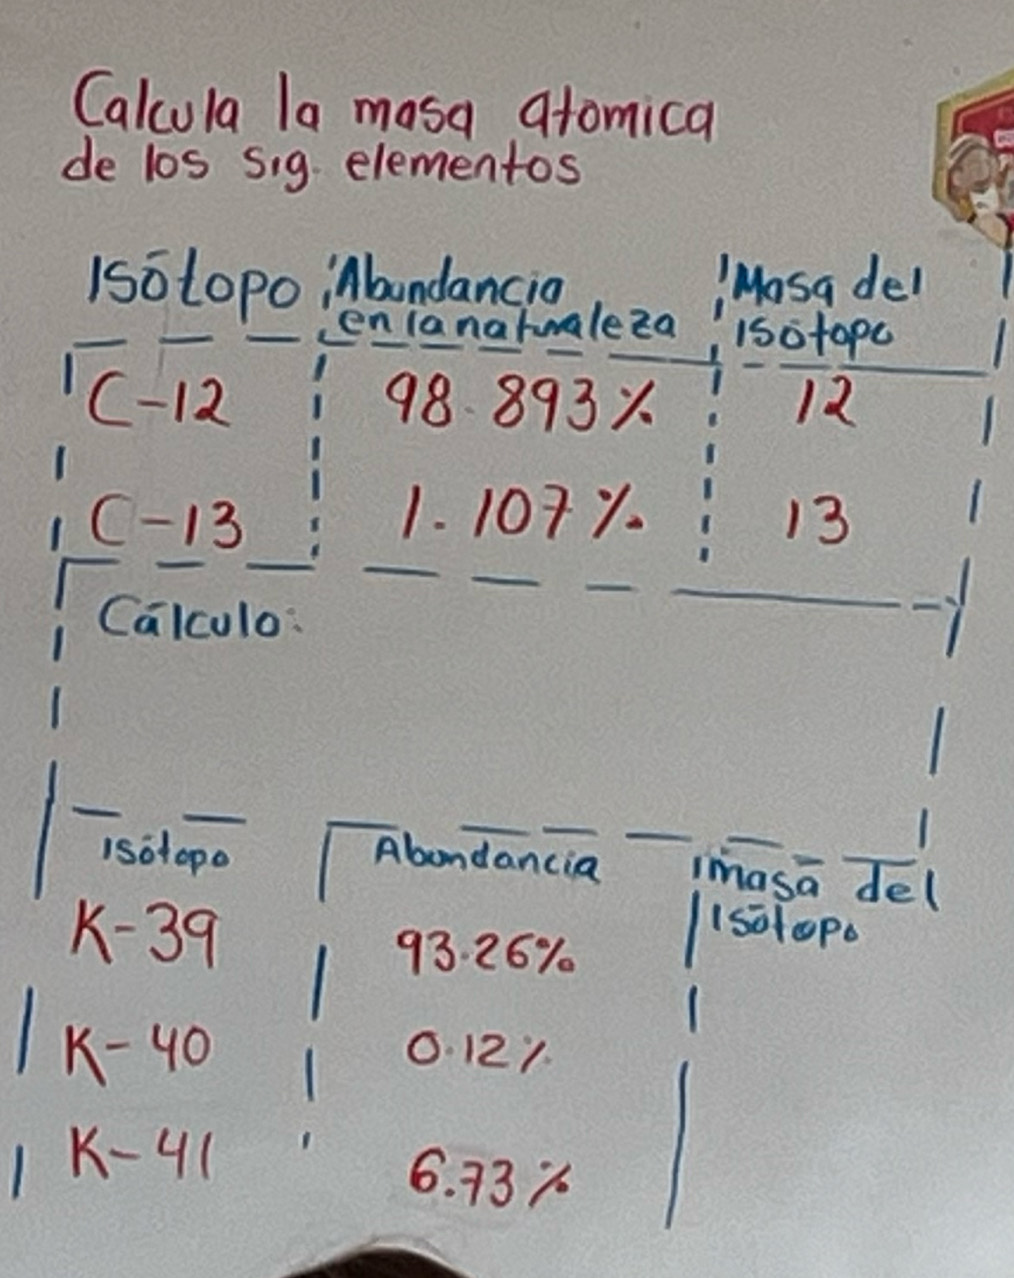 Calcula la masa atomica
de los sig. elementos
Isótopo Abundancia en la naturaleza Masa del isótopo
C-12 98.893% 12
C-13 1.107% 13
Cálculo:
isótopo Abundancia masa del isótopo
K-39 93.26%
K-40 0.12%
K-41 6.73%